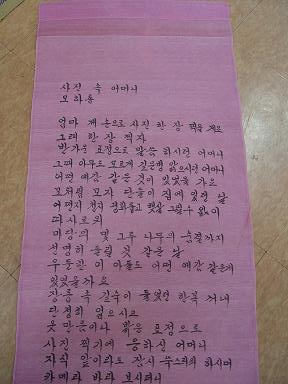 사진 속 어머니
모하용
엄마 제 손으로 사진 한 장 찍을 게요
그래 한 장 찍자
반가운 표정으로 말씀 하시던 어머니
그때 아무도 모르게 깊은병 앓으시던 어머니
어떤 예감 같은 것이 있었을 까요
모처럼 모자 단둘이 집에 있던 날
어쩐지 천지 평화롭고 햇살 그렇수 없이
따사로워
마당의 몇 그루 나무의 숨결까지
선명히 들릴 것 같은 날
무둔한 이 아들도 어떤 예감 같은게
있었을까요
장롱 속 깊수이 들었던 한복 꺼내
단정히 입으시고
웃 만들이나 밝은 표정으로
사진 찍기에 응하신 어머니
자식 앞이라도 잠시 수스러워 하시며
카메라 바라 보시더니